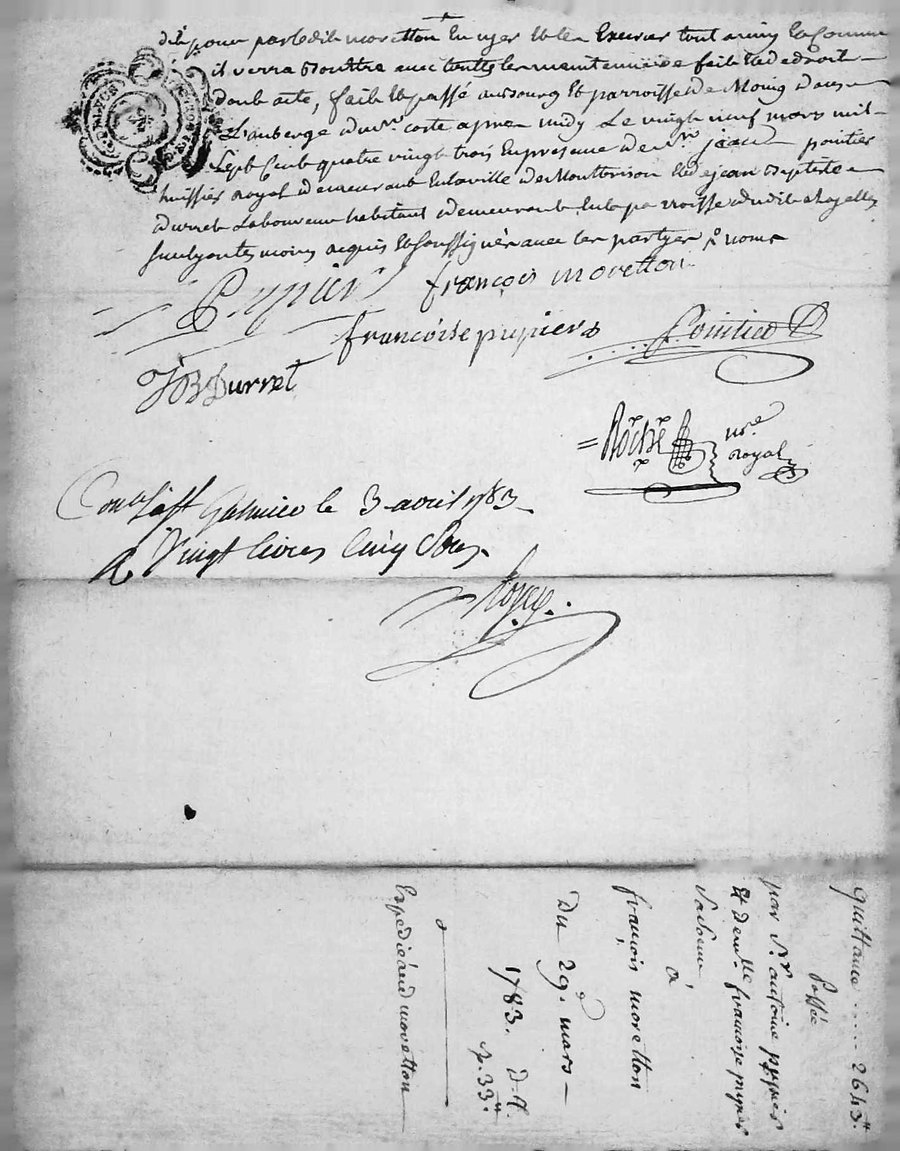 dit pour par ledit moretton en user et les exercer tout ainsy et comme
il verra et outtre avec touttes les maintenue de fait et de droit
dont acte, fait et passé au bourg et parroisse de Moing dans
L'auberge du Sr. coste apres midy Le vingt neuf mars mil
sept cent quatre vingt trois en presence de Sr. jean pointier
huissier royal demeurant en la ville de Montbrison et de jean baptiste
durret Laboureur habitant demeurant en la parroisse dudit
temoins requis et soussignés avec les partyes
Pupier françois moretton
francoise pupiers Pointier
JB Durret
Roche nre.
royal
Conlé à St Galmier le 3 avril 1783
R Vingt livres Cinq Sous
quittance .... 2643 tt
Passée
par Sr. antoine pupier
et demlle françoise pupier
sa soeur
à
françois moretton
Du 29. mars
1783.
Expédié aud moretton